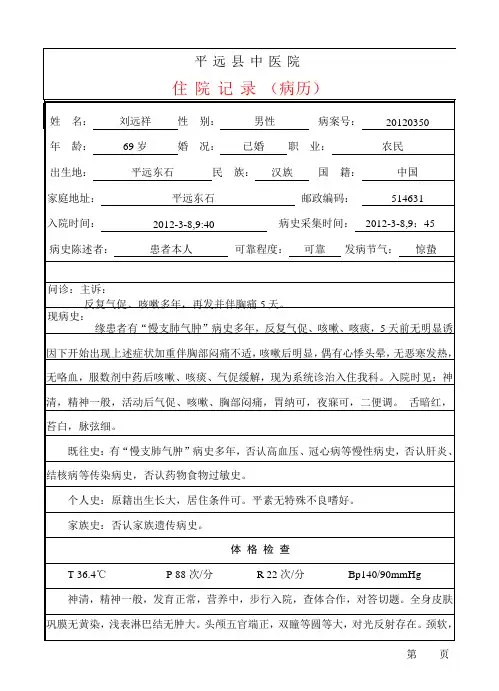 平 远 县 中 医 院
住 院 记 录 （病历）
姓 名： 刘远祥 性 别： 男性 病案号： 20120350
年 龄： 69 岁 婚 况： 已婚 职 业： 农民
出生地： 平远东石 民 族： 汉族 国 籍： 中国
家庭地址： 平远东石 邮政编码： 514631
入院时间： 2012-3-8,9:40 病史采集时间： 2012-3-8,9：45
病史陈述者： 患者本人 可靠程度： 可靠 发病节气： 惊蛰
问诊：主诉：
反复气促、咳嗽多年，再发并伴胸痛 5 天。
现病史：
缘患者有“慢支肺气肿”病史多年，反复气促、咳嗽、咳痰，5 天前无明显诱
因下开始出现上述症状加重伴胸部闷痛不适，咳嗽后明显，偶有心悸头晕，无恶寒发热，
无咯血，服数剂中药后咳嗽、咳痰、气促缓解，现为系统诊治入住我科。入院时见：神
清，精神一般，活动后气促、咳嗽、胸部闷痛，胃纳可，夜寐可，二便调。 舌暗红，
苔白，脉弦细。
既往史：有“慢支肺气肿”病史多年，否认高血压、冠心病等慢性病史，否认肝炎、
结核病等传染病史，否认药物食物过敏史。
个人史：原籍出生长大，居住条件可。平素无特殊不良嗜好。
家族史：否认家族遗传病史。
体 格 检 查
T 36.4℃ P 88 次/分 R 22 次/分 Bp140/90mmHg
神清，精神一般，发育正常，营养中，步行入院，查体合作，对答切题。全身皮肤
巩膜无黄染，浅表淋巴结无肿大。头颅五官端正，双瞳等圆等大，对光反射存在。颈软，
第 页